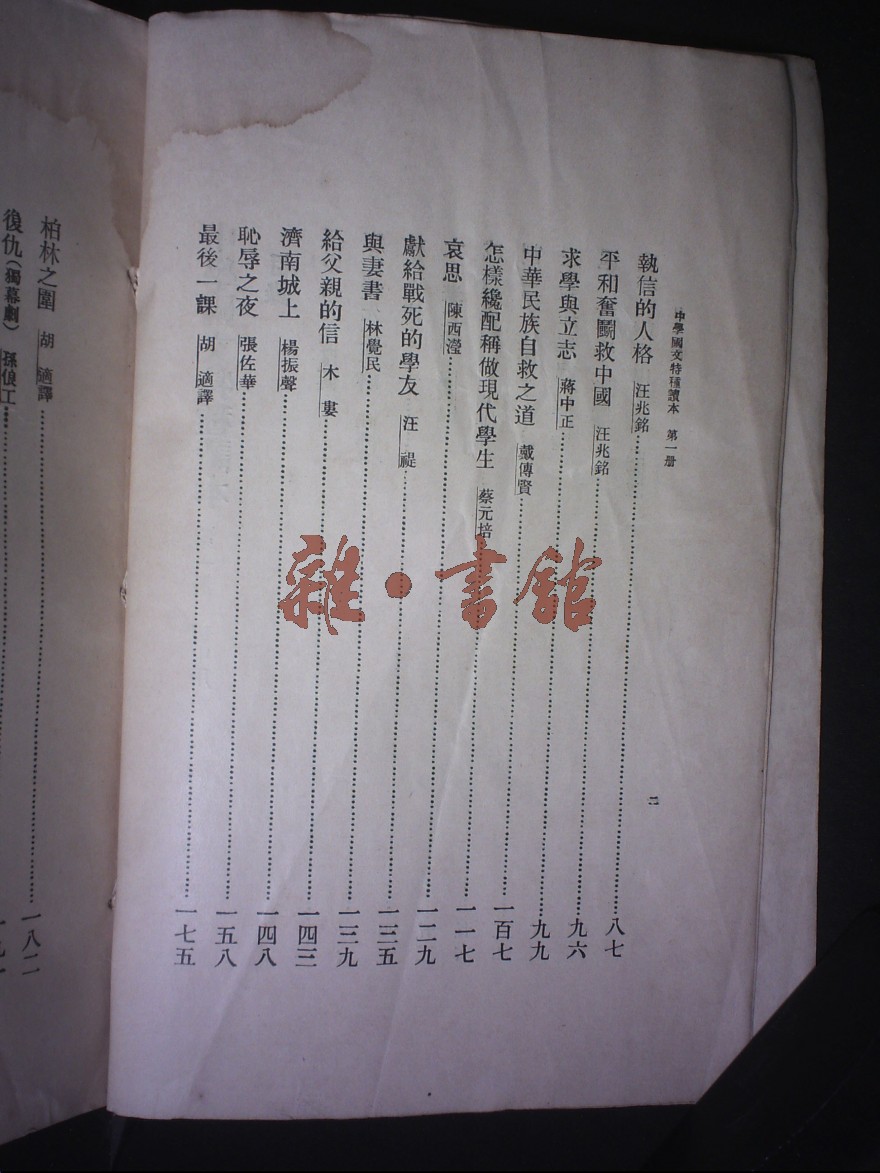 中學國文特種讀本 第一册
二
執信的人格 汪兆銘……八七
平和奮鬭救中國 汪兆銘……九六
求學與立志 蔣中正……九九
中華民族自救之道 戴傳賢……一百七
怎樣纔配稱做現代學生 蔡元培……一一七
哀思 陳西瀅……一二九
獻給戰死的學友 汪 禔……一三五
與妻書 林覺民……一三九
給父親的信 木 婁……一四三
濟南城上 楊振聲……一四八
恥辱之夜 張佐華……一五八
最後一課 胡 適譯……一七五
柏林之圍 胡 適譯……一八二
復仇(獨幕劇) 孫俍工……
雜·書館